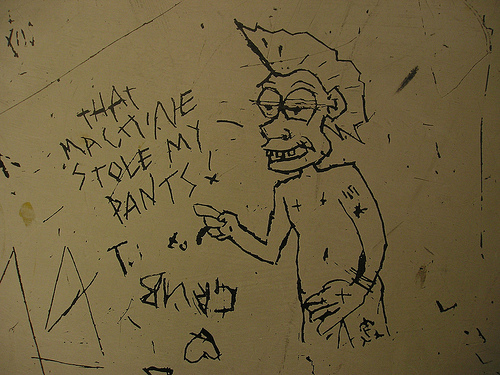 THAT
MACHINE
STOLE MY
PANTS!